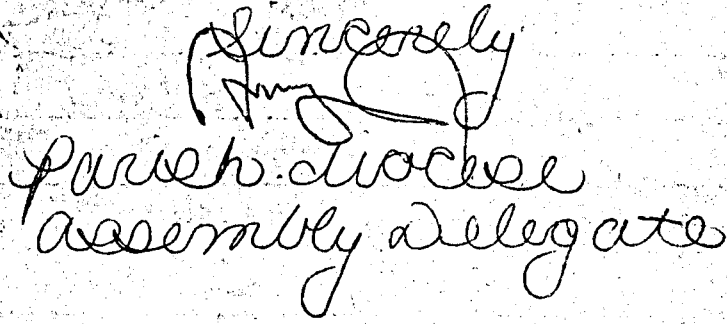 Sincerely
Parish diocese
Assembly Delegate